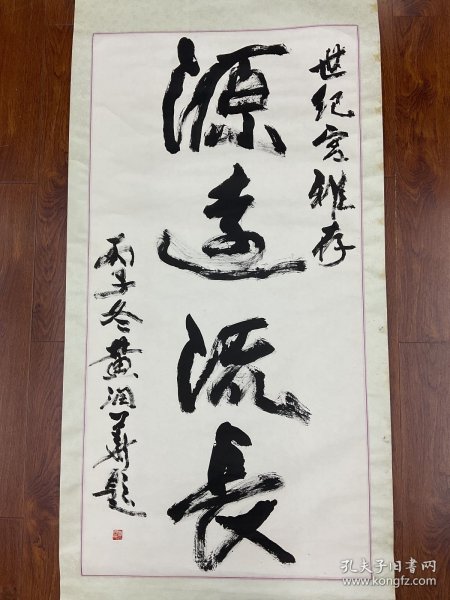 世纪宫雅存
源远流長
丙子冬黄润华题
孔夫子旧书网
www.kongfz.com